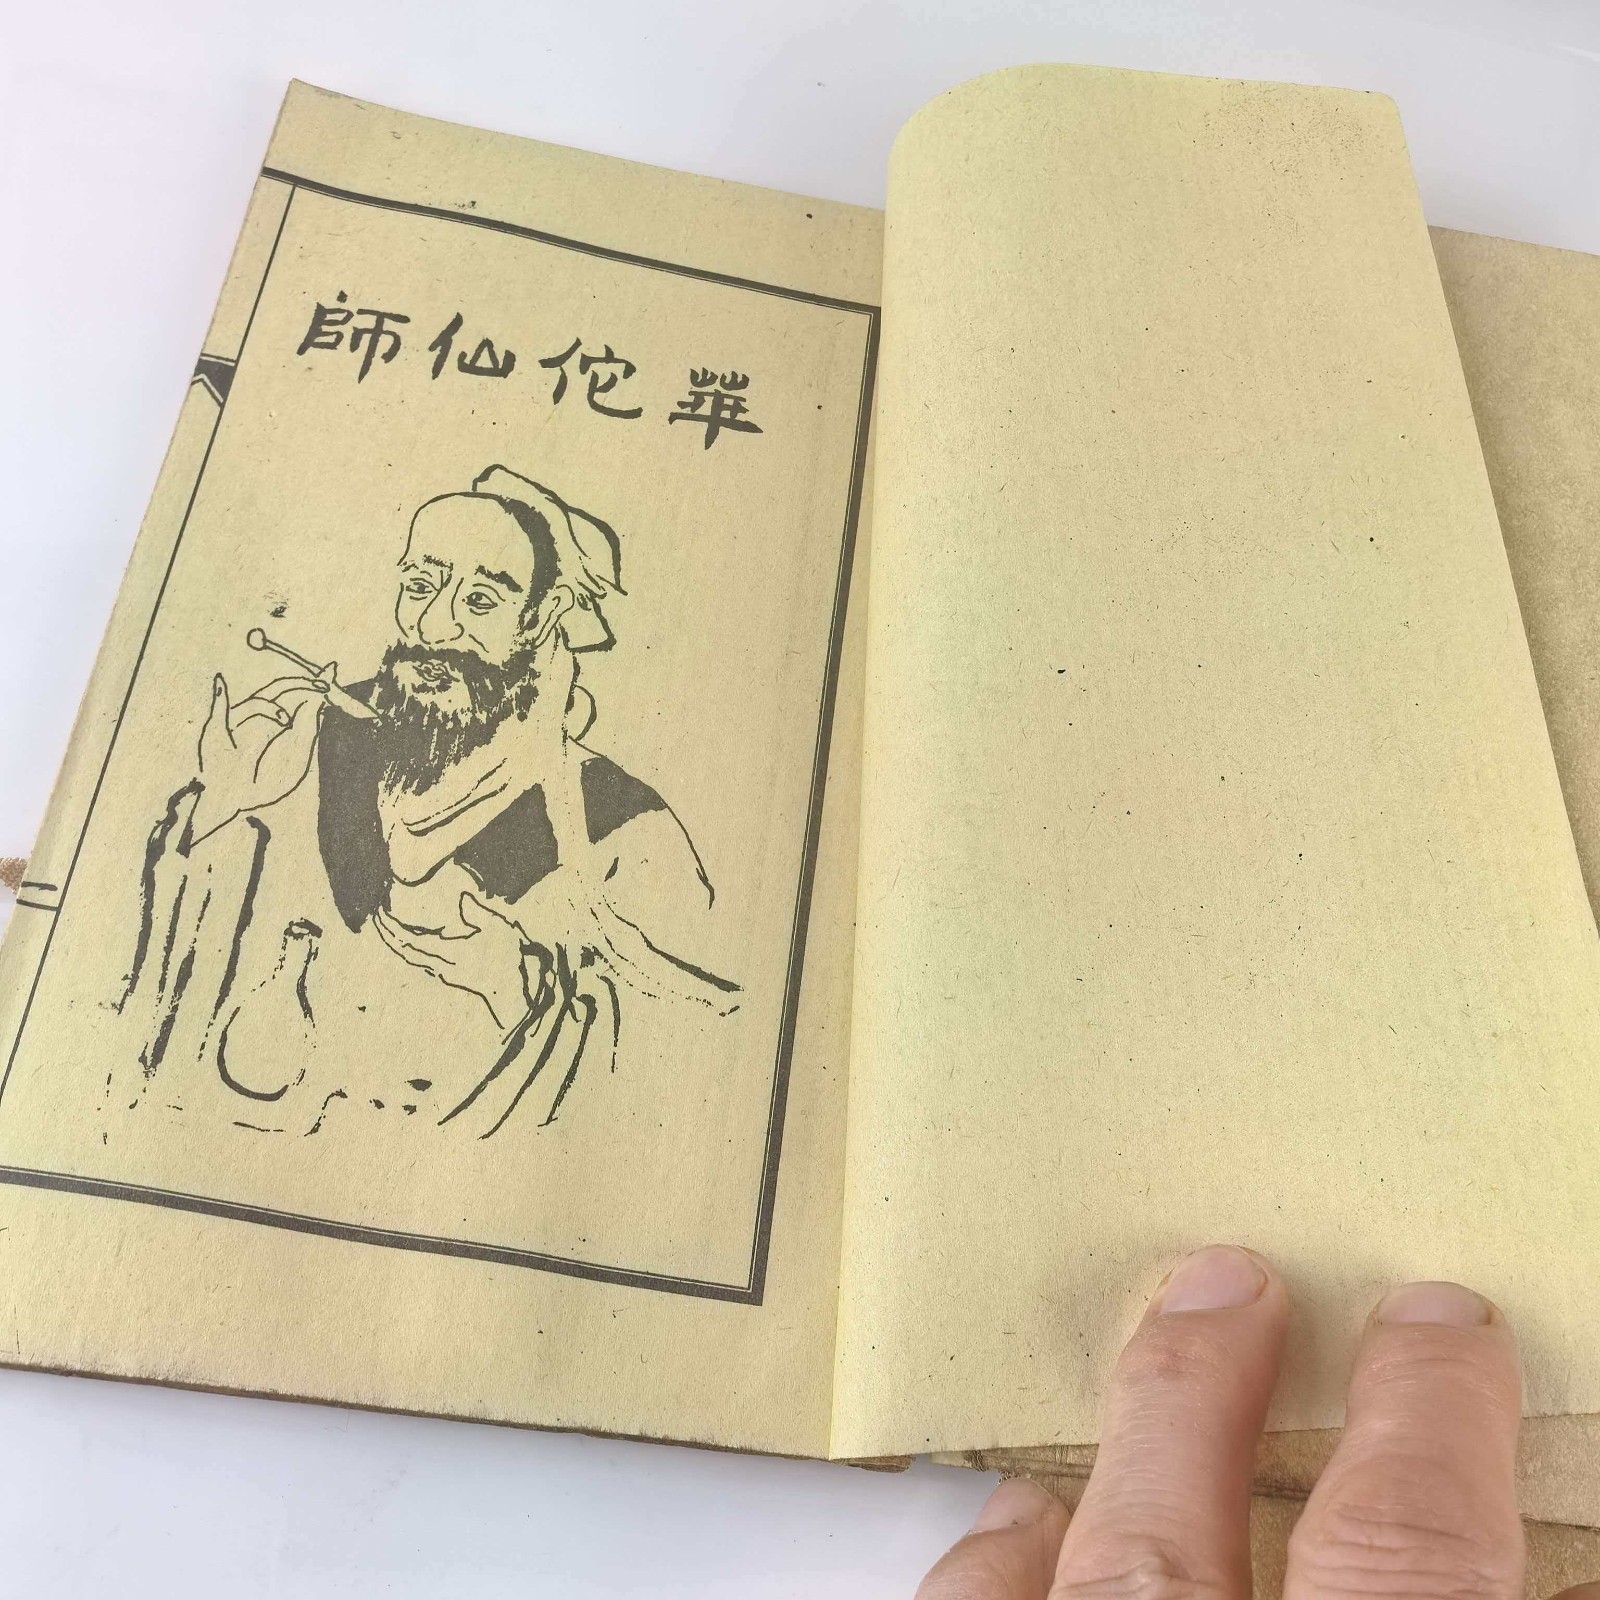 華佗仙師